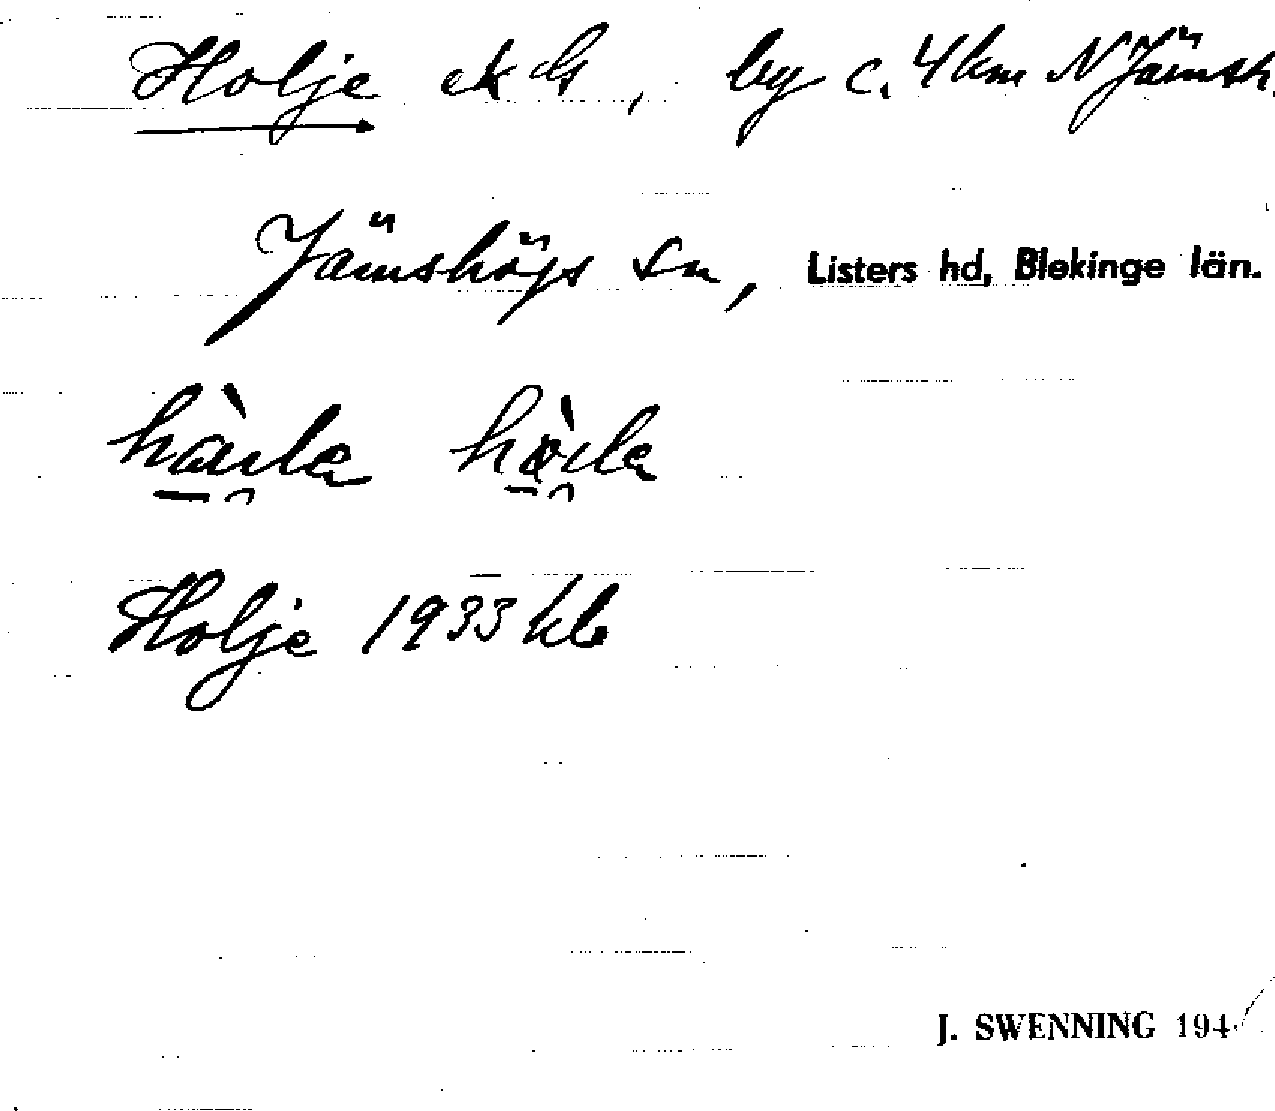 Holje ek by c. 4 km N Jämsh.
Jämshögs sn, Listers hd, Blekinge län.
Holje 1933 kb
J. SWENNING 194